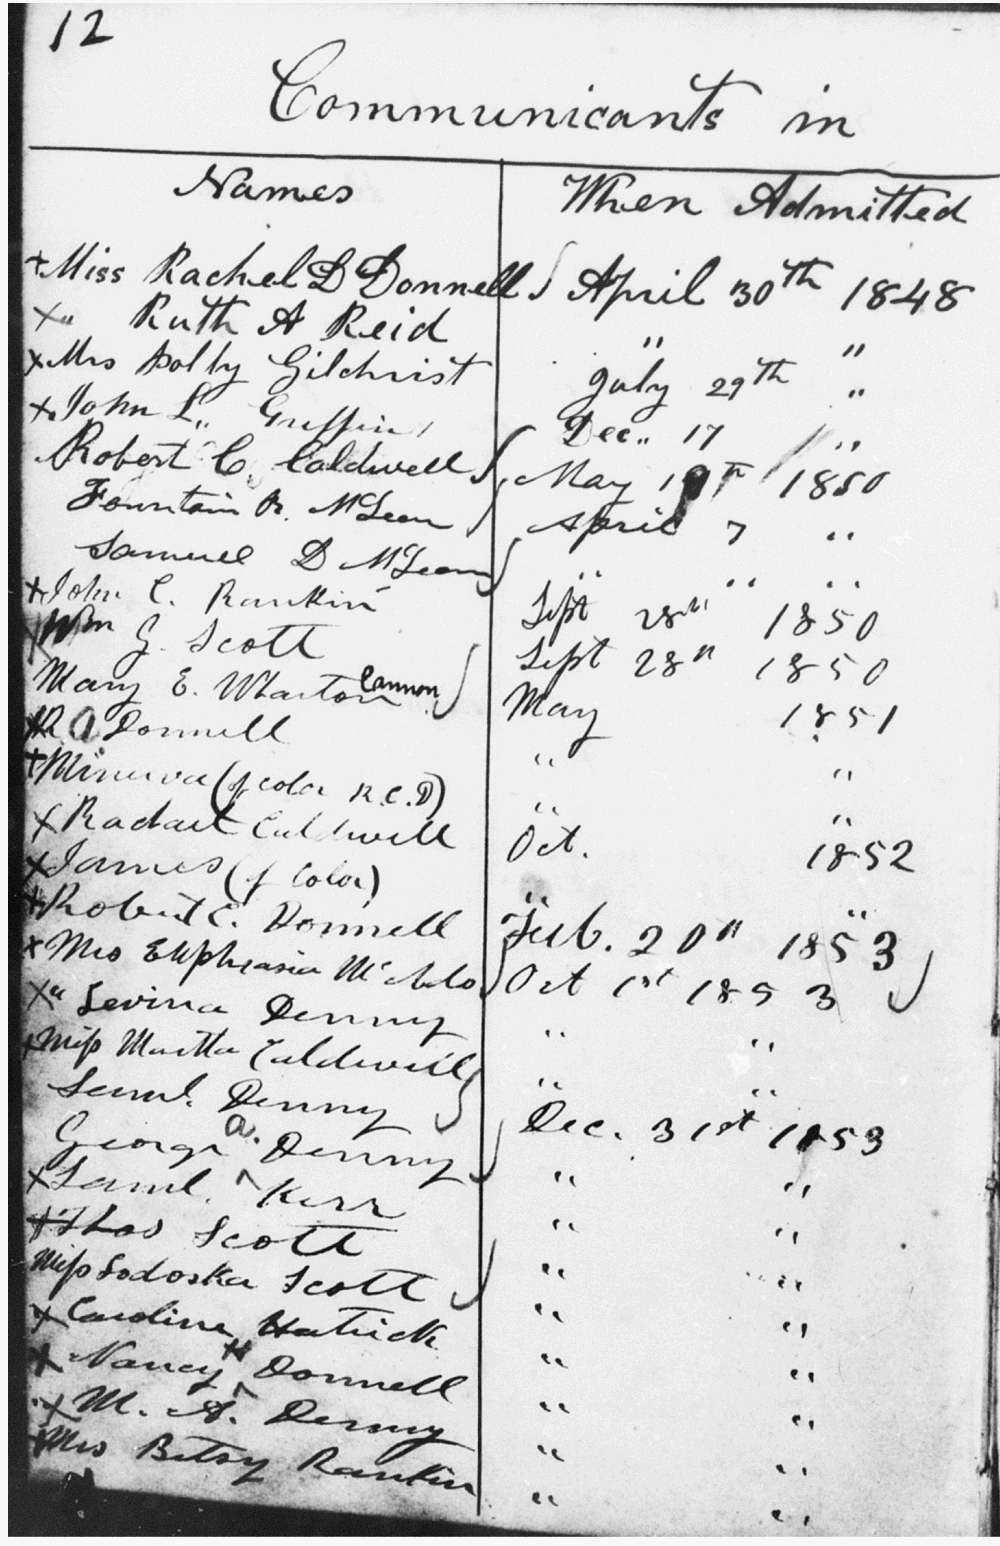 12
Communicants in
Names When Admitted
+ Miss Rachel D Donnell April 30th 1848
x " Ruth A Reid " "
x Mrs Polly Gilchrist July 29th "
x John L. Griffin Dec. 17 "
Robert C. Caldwell May 19th 1850
Fountain R. McLean April 7 "
Samuel D McLean " " "
x John C. Rankin Sept 28th 1850
Wm G. Scott Sept 28th 1850
Mary E. Wharton Cannon May 1851
R Donnell " "
+ Minerva (of color R.C.D) " "
x Caldwell Oct. 1852
x James (of Color) " "
x Robert C. Donnell Feb. 20th 1853
x Mrs Euphrasia Oct 1st 1853
x " Levina Denny " "
x Miss Martha Caldwell " "
Saml. Denny Dec. 31st 1853
George a. Denny " "
x Saml. ^ Kerr " "
x Thos Scott " "
Miss Lodoska Scott " "
x Caroline Hatrick " "
x Nancy H ^ Donnell " "
x M. A. Denny " "
x Mrs Betsy Rankin " "